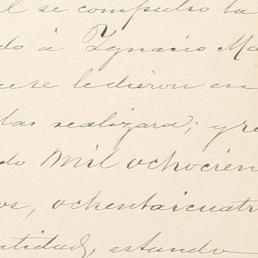 l se compulso la
do à Ygnacio Ma
cese le dieron en
las realizara; y re
do Mil ochocien
os, ochentaicuatr
ntidad, estando